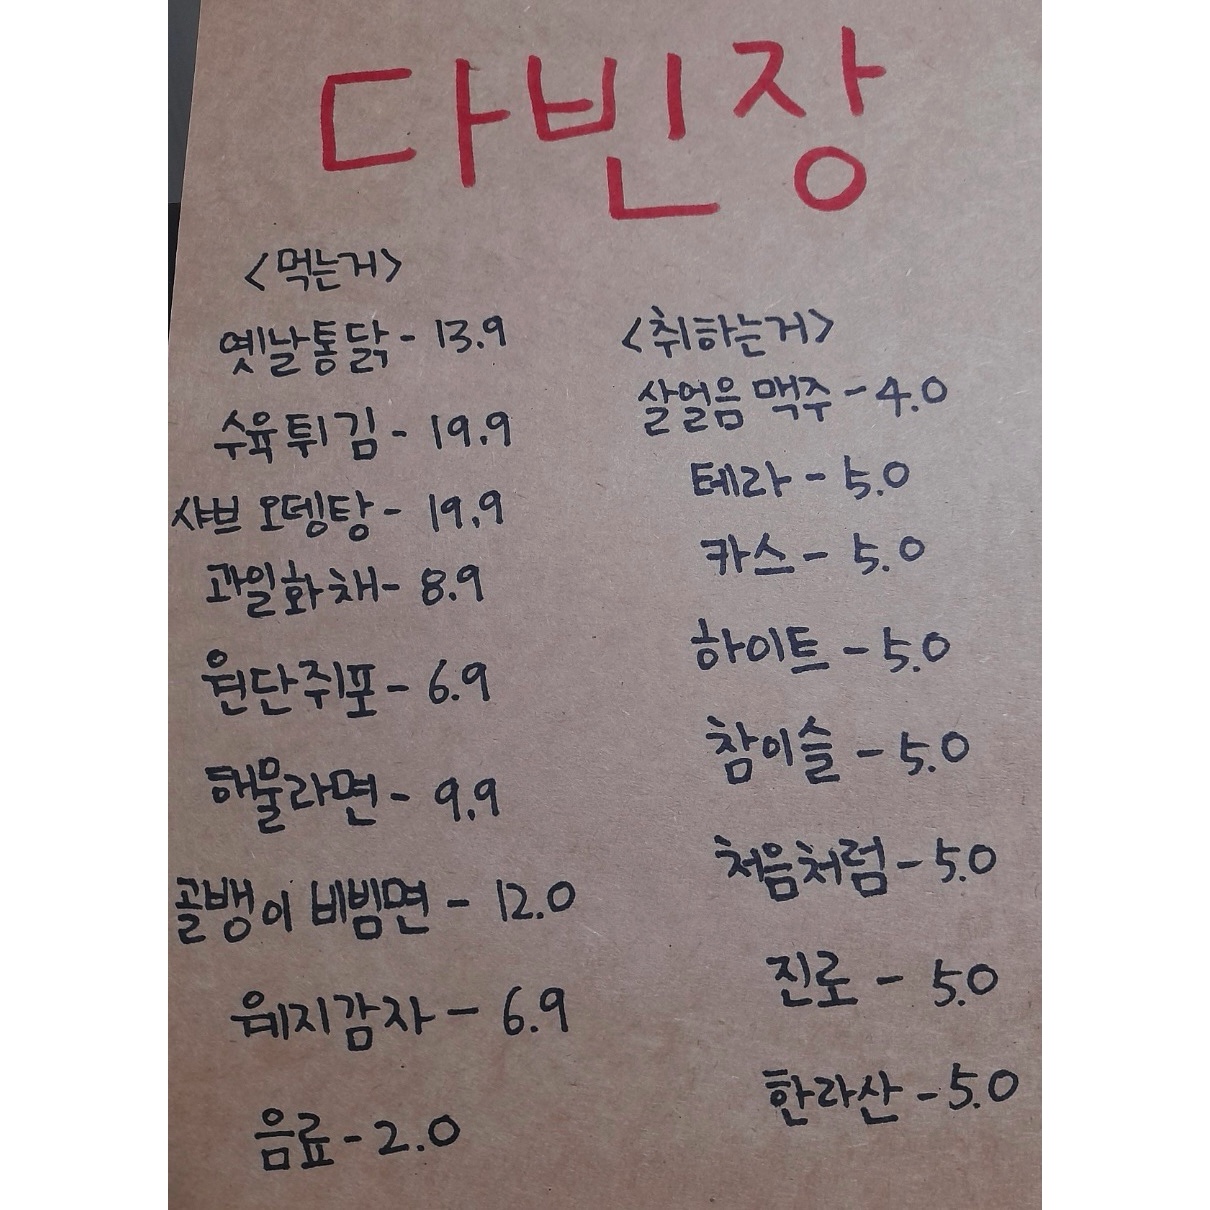 다빈장
<먹는거>
옛날통닭 - 13.9
수육튀김 - 19.9
샤브 오뎅탕 - 19.9
과일화채 - 8.9
원단쥐포 - 6.9
해물라면 - 9.9
골뱅이 비빔면 - 12.0
웨지감자 - 6.9
음료 - 2.0
<취하는거>
살얼음 맥주 - 4.0
테라 - 5.0
카스 - 5.0
하이트 - 5.0
참이슬 - 5.0
처음처럼 - 5.0
진로 - 5.0
한라산 - 5.0